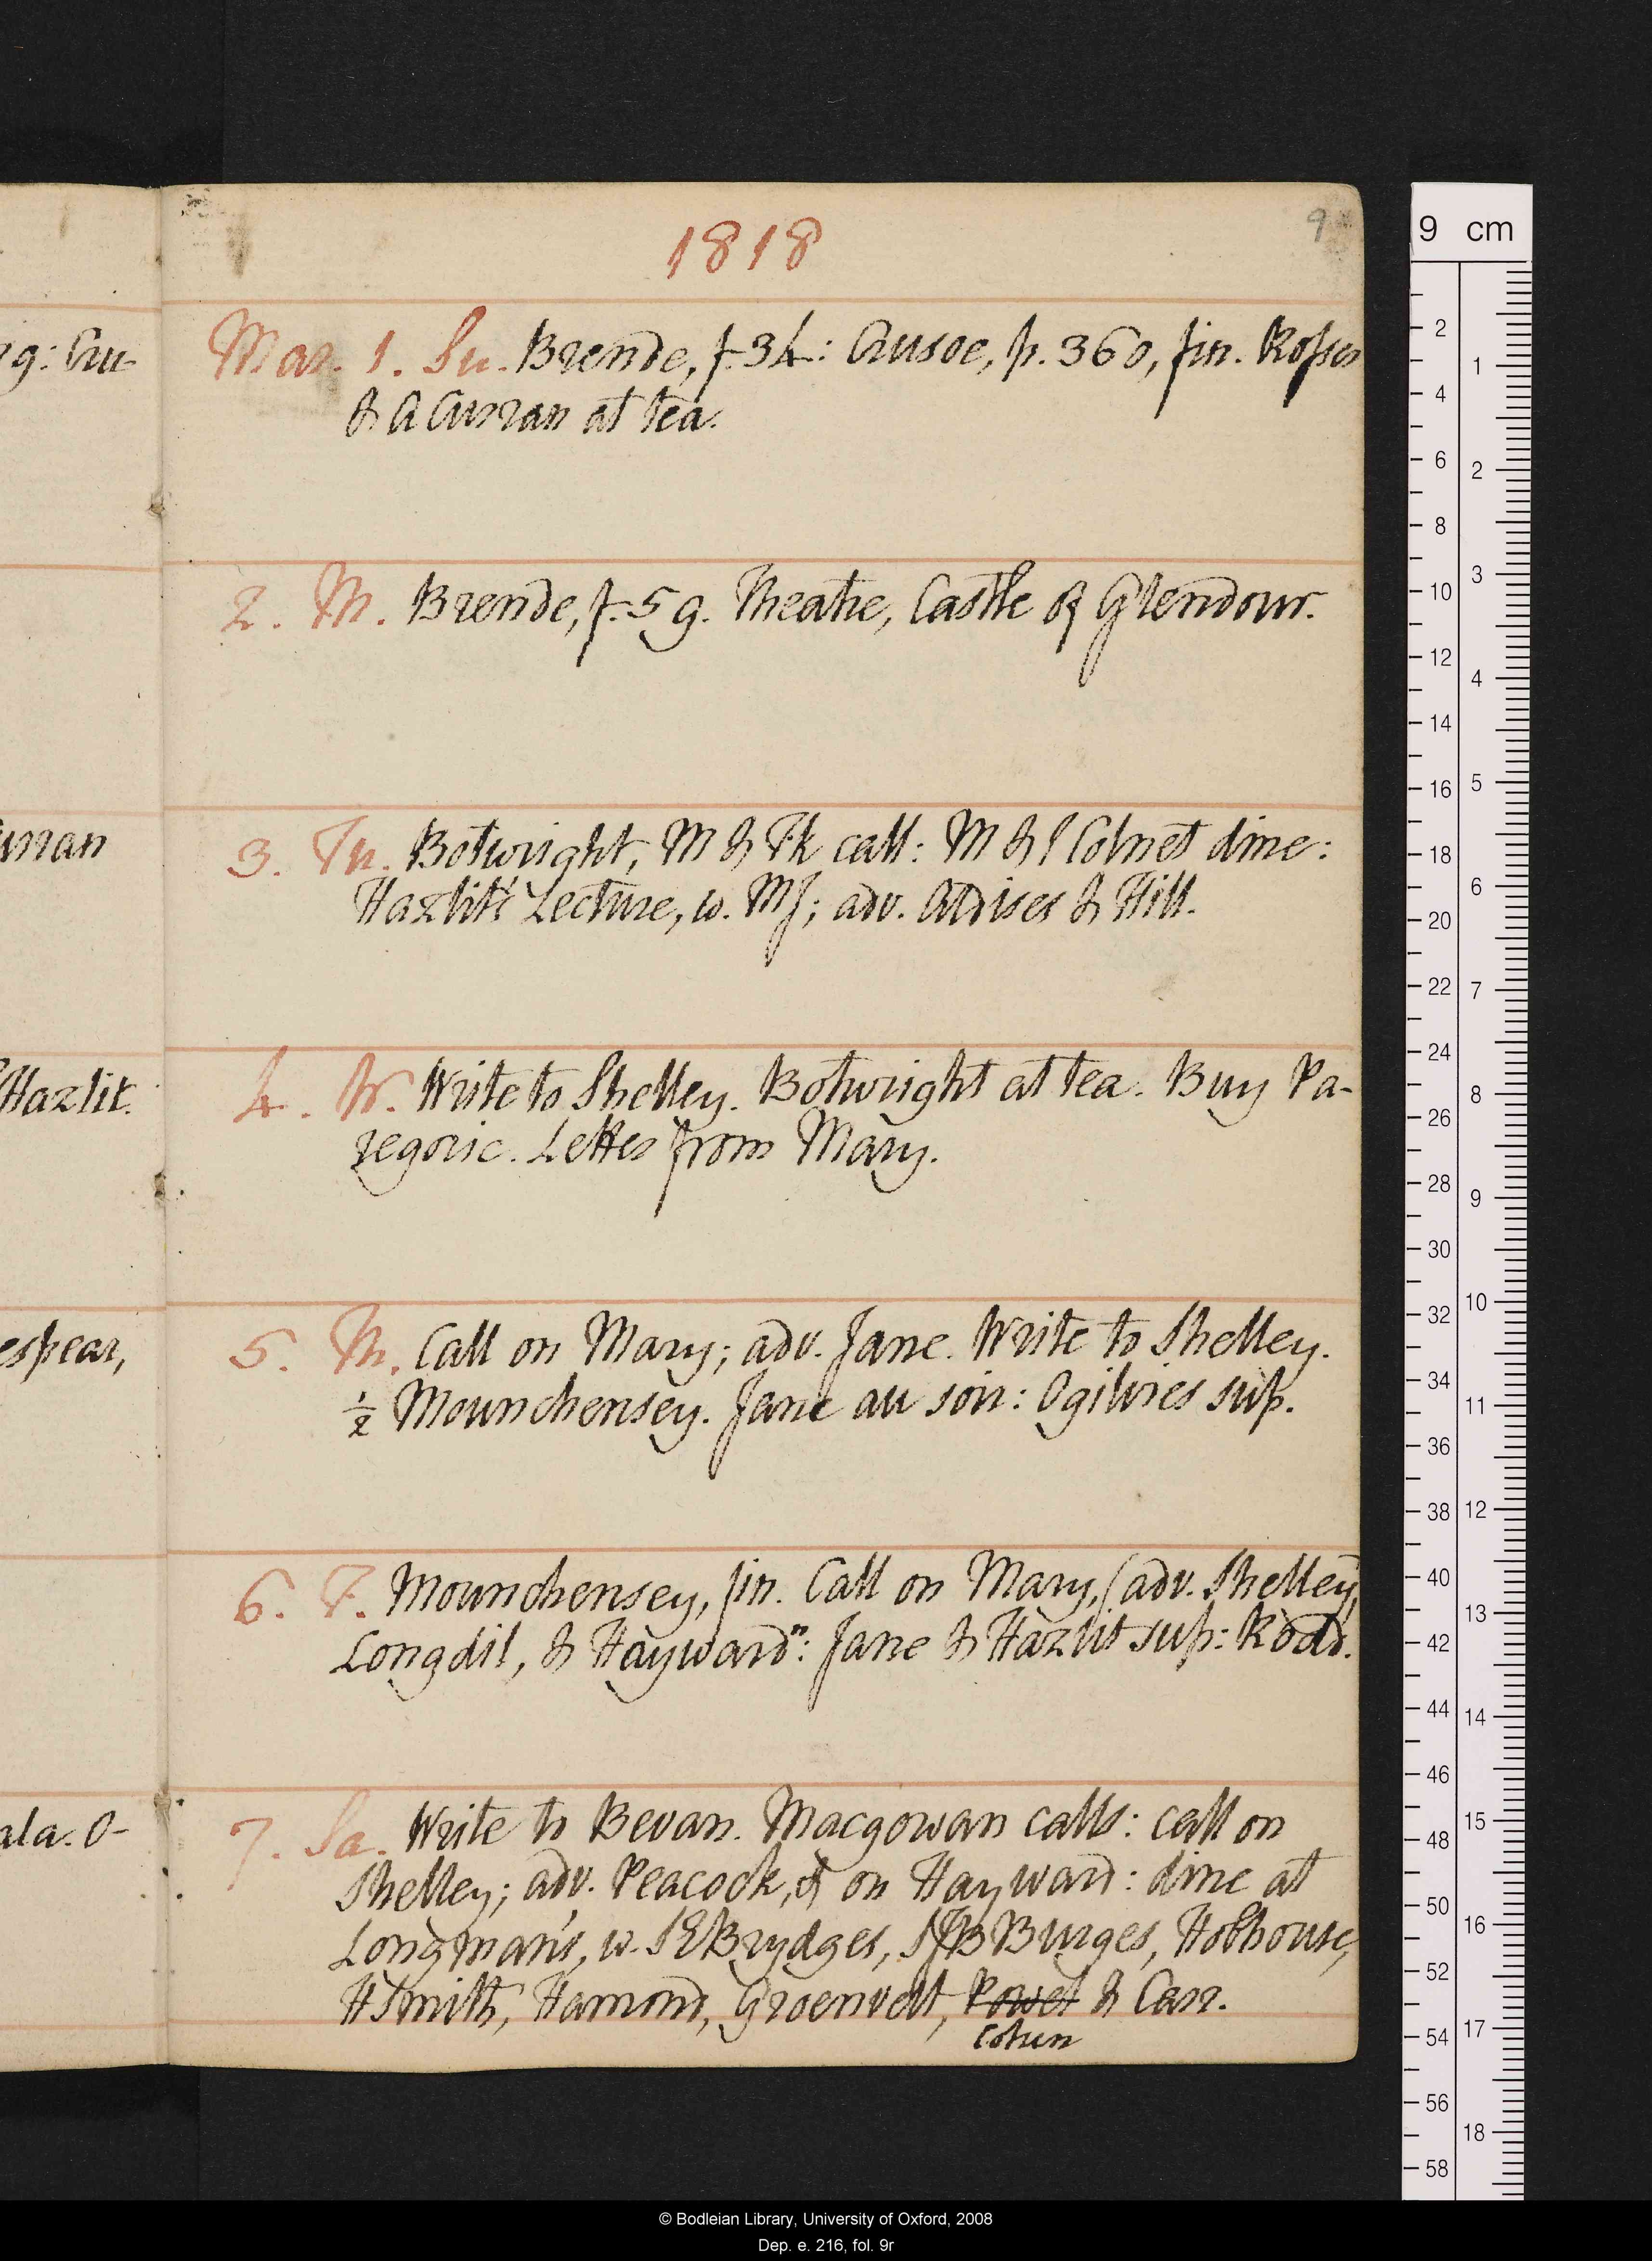 1818
9
rg: Cru-
Mar. 1. Su. Brende, f. 34: Crusoe, p. 360, fin. Rosser
& A Curran at tea.
2. M. Brende, f. 59. Theatre, Castle of Glendowr.
urran
3. Tu. Botwright, M & Tk call: M & J Colnet dine:
Hazlit's Lecture, w. MJ; adv. Aldises & Hill.
Hazlit.
4. W. Write to Shelley. Botwright at tea. Buy Pa-
regoric. Letter from Mary.
espear,
5. Th. Call on Mary; adv. Jane. Write to Shelley.
½ Mounchensey. Jane au soir: Ogilvies sup.
6. F. Mounchensey, fin. Call on Mary, (adv. Shelley,
Longdil, & Hayward": Jane & Hazlit sup: Rodd.
ala. O-
7. Sa. Write to Bevan. Macgowan calls: call on
Shelley; adv. Peacock, & on Hayward: dine at
Longman's, w. S E Brydges, S J B Burges, Hobhouse,
H Smith, Hamond, Groenvelt, Powel & Carr.
Cohen
9 cm
2
4
6
8
10
12
14
16
18
20
22
24
26
28
30
32
34
36
38
40
42
44
46
48
50
52
54
56
58
1
2
3
4
5
6
7
8
9
10
11
12
13
14
15
16
17
18
© Bodleian Library, University of Oxford, 2008
Dep. e. 216, fol. 9r